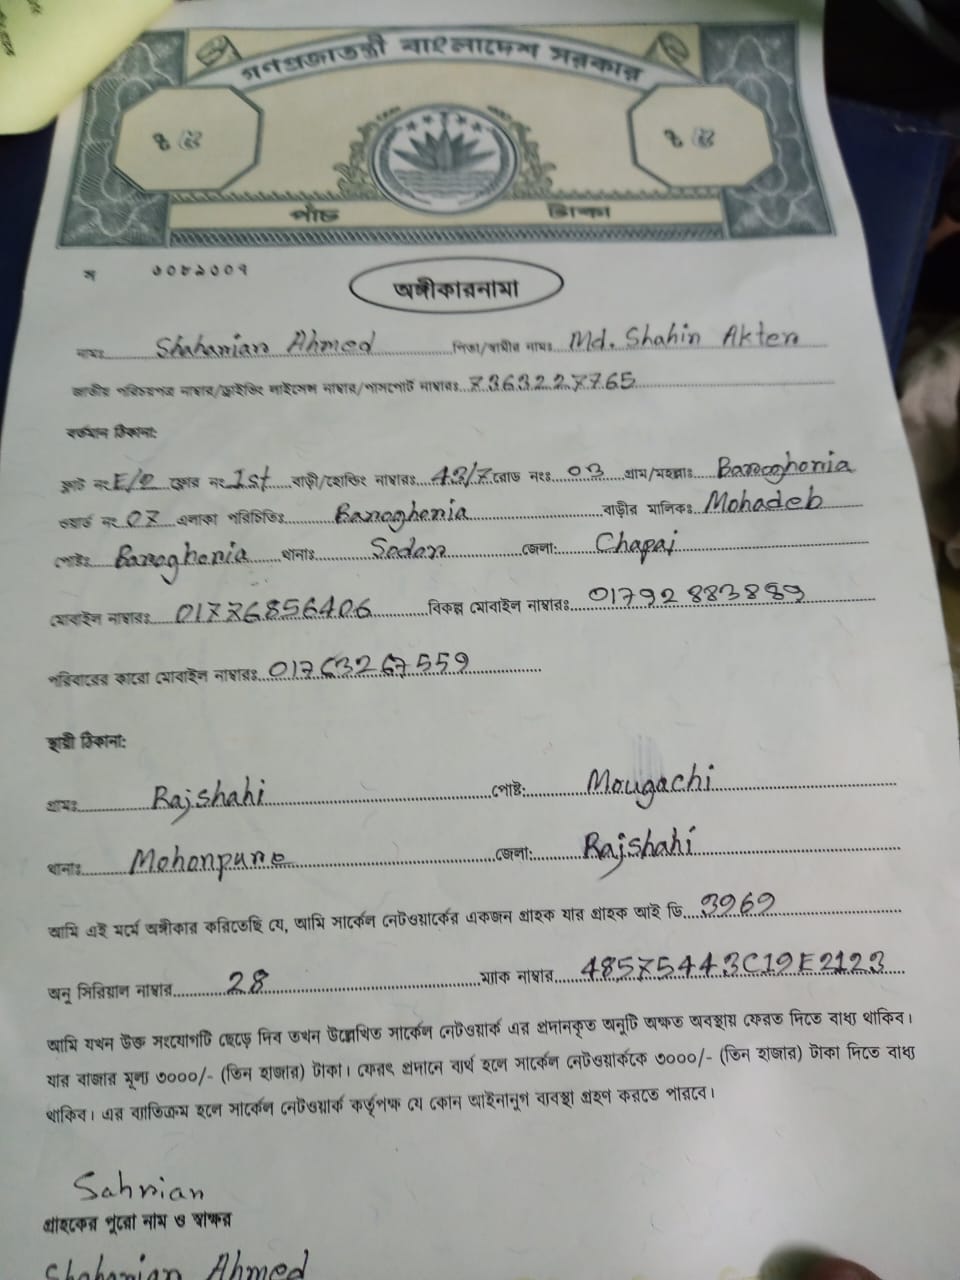 গণপ্রজাতন্ত্রী বাংলাদেশ সরকার
পাঁচ টাকা
অঙ্গীকারনামা
নামঃ Shahanian Ahmed পিতা/স্বামীর নামঃ Md. Shahin Akter
জাতীয় পরিচয়পত্র নাম্বার/ড্রাইভিং লাইসেন্স নাম্বার/পাসপোর্ট নাম্বারঃ 7363227765
বর্তমান ঠিকানা:
ফ্লাট নং E/2 ফ্লোর নং 1st বাড়ী/হোল্ডিং নাম্বারঃ 43/7 রোড নংঃ 03 গ্রাম/মহল্লাঃ Baroghoria
ওয়ার্ড নং 07 এলাকা পরিচিতিঃ Baroghoria বাড়ীর মালিকঃ Mohadeb
পোষ্টঃ Baroghoria থানাঃ Sodor জেলা: Chapai
মোবাইল নাম্বারঃ 01776856406 বিকল্প মোবাইল নাম্বারঃ 01792883889
পরিবারের কারো মোবাইল নাম্বারঃ 01763267559
স্থায়ী ঠিকানা:
গ্রামঃ Rajshahi পোষ্ট: Mougachi
থানাঃ Mohonpure জেলা: Rajshahi
আমি এই মর্মে অঙ্গীকার করিতেছি যে, আমি সার্কেল নেটওয়ার্কের একজন গ্রাহক যার গ্রাহক আই ডি 3969
অনু সিরিয়াল নাম্বার 28 ম্যাক নাম্বার 48575443C19E2123
আমি যখন উক্ত সংযোগটি ছেড়ে দিব তখন উল্লেখিত সার্কেল নেটওয়ার্ক এর প্রদানকৃত অনুটি অক্ষত অবস্থায় ফেরত দিতে বাধ্য থাকিব।
যার বাজার মূল্য ৩০০০/- (তিন হাজার) টাকা। ফেরৎ প্রদানে ব্যর্থ হলে সার্কেল নেটওয়ার্ককে ৩০০০/- (তিন হাজার) টাকা দিতে বাধ্য
থাকিব। এর ব্যাতিক্রম হলে সার্কেল নেটওয়ার্ক কর্তৃপক্ষ যে কোন আইনানুগ ব্যবস্থা গ্রহণ করতে পারবে।
Sahnian
গ্রাহকের পুরো নাম ও স্বাক্ষর
Shahanian Ahmed